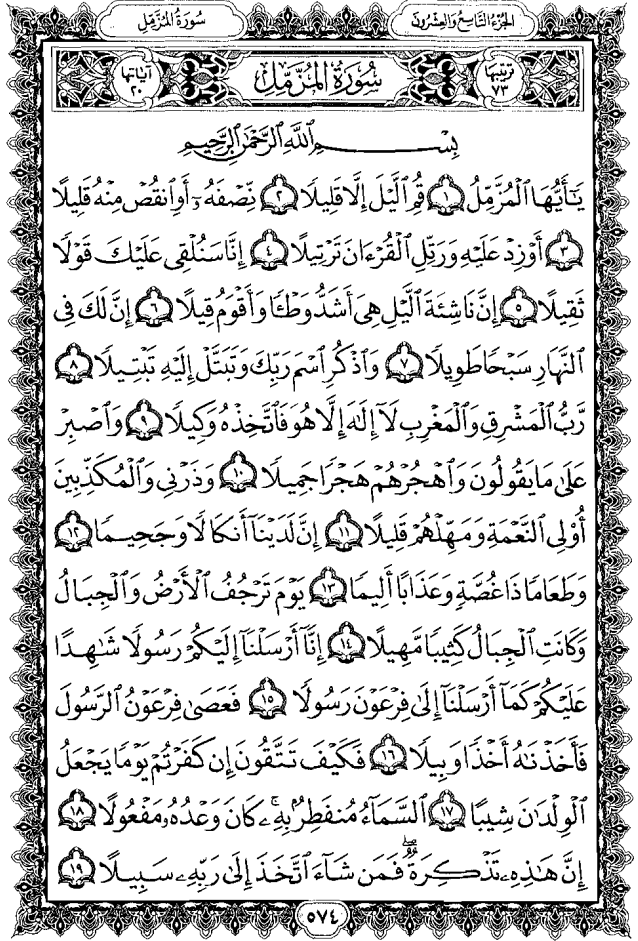 الجزء التاسع والعشرون
سورة المزمل
ترتيبها ٧٣
سورة المزمل
آياتها ٢٠
بِسْمِ ٱللَّهِ ٱلرَّحْمَٰنِ ٱلرَّحِيمِ
يَٰٓأَيُّهَا ٱلْمُزَّمِّلُ ١ قُمِ ٱلَّيْلَ إِلَّا قَلِيلًا ٢ نِّصْفَهُۥٓ أَوِ ٱنقُصْ مِنْهُ قَلِيلًا
٣ أَوْ زِدْ عَلَيْهِ وَرَتِّلِ ٱلْقُرْءَانَ تَرْتِيلًا ٤ إِنَّا سَنُلْقِى عَلَيْكَ قَوْلًا
ثَقِيلًا ٥ إِنَّ نَاشِئَةَ ٱلَّيْلِ هِىَ أَشَدُّ وَطْـًٔا وَأَقْوَمُ قِيلًا ٦ إِنَّ لَكَ فِى
ٱلنَّهَارِ سَبْحًا طَوِيلًا ٧ وَٱذْكُرِ ٱسْمَ رَبِّكَ وَتَبَتَّلْ إِلَيْهِ تَبْتِيلًا ٨
رَّبُّ ٱلْمَشْرِقِ وَٱلْمَغْرِبِ لَآ إِلَٰهَ إِلَّا هُوَ فَٱتَّخِذْهُ وَكِيلًا ٩ وَٱصْبِرْ
عَلَىٰ مَا يَقُولُونَ وَٱهْجُرْهُمْ هَجْرًا جَمِيلًا ١٠ وَذَرْنِى وَٱلْمُكَذِّبِينَ
أُو۟لِى ٱلنَّعْمَةِ وَمَهِّلْهُمْ قَلِيلًا ١١ إِنَّ لَدَيْنَآ أَنكَالًا وَجَحِيمًا ١٢
وَطَعَامًا ذَا غُصَّةٍ وَعَذَابًا أَلِيمًا ١٣ يَوْمَ تَرْجُفُ ٱلْأَرْضُ وَٱلْجِبَالُ
وَكَانَتِ ٱلْجِبَالُ كَثِيبًا مَّهِيلًا ١٤ إِنَّآ أَرْسَلْنَآ إِلَيْكُمْ رَسُولًا شَٰهِدًا
عَلَيْكُمْ كَمَآ أَرْسَلْنَآ إِلَىٰ فِرْعَوْنَ رَسُولًا ١٥ فَعَصَىٰ فِرْعَوْنُ ٱلرَّسُولَ
فَأَخَذْنَٰهُ أَخْذًا وَبِيلًا ١٦ فَكَيْفَ تَتَّقُونَ إِن كَفَرْتُمْ يَوْمًا يَجْعَلُ
ٱلْوِلْدَٰنَ شِيبًا ١٧ ٱلسَّمَآءُ مُنفَطِرٌۢ بِهِۦ ۚ كَانَ وَعْدُهُۥ مَفْعُولًا ١٨
إِنَّ هَٰذِهِۦ تَذْكِرَةٌ ۖ فَمَن شَآءَ ٱتَّخَذَ إِلَىٰ رَبِّهِۦ سَبِيلًا ١٩
٥٧٤